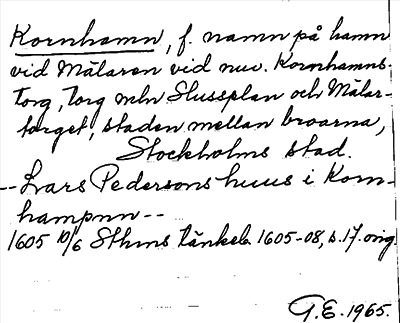 Kornhamn, f. namn på hamn
vid Mälaren vid nuv. Kornhamns-
torg, torg mln Slussplan och Mälar-
torget, staden mellan broarna,
Stockholms stad.
--Lars Pedersons huus i Korn-
hampnn--
1605 10/6 Sthms tänkeb. 1605-08, s.17. orig.
G.E. 1965.